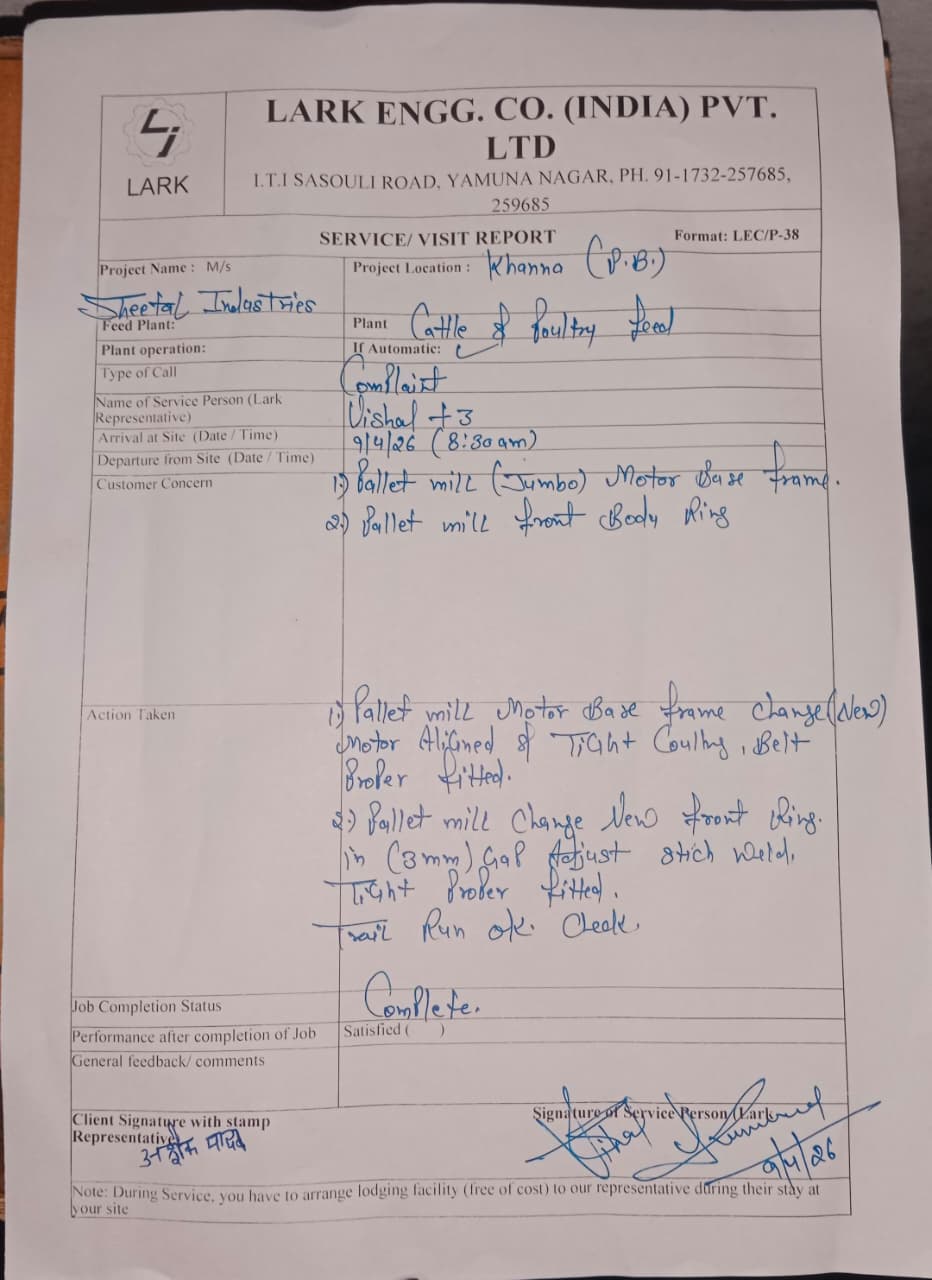 LARK
LARK ENGG. CO. (INDIA) PVT.
LTD
I.T.I SASOULI ROAD, YAMUNA NAGAR, PH. 91-1732-257685,
259685
SERVICE/ VISIT REPORT
Format: LEC/P-38
Project Name : M/s
Sheetal Industries
Project Location : Khanna (P.B.)
Feed Plant:
Plant Cattle & Poultry feed
Plant operation:
If Automatic: ✓
Type of Call
Complaint
Name of Service Person (Lark
Representative)
Vishal +3
Arrival at Site (Date / Time)
9/4/26 (8:30 am)
Departure from Site (Date / Time)
Customer Concern
1.) Pallet mill (Jumbo) Motor Base frame.
2.) Pallet mill front Body Ring
Action Taken
1.) Pallet mill Motor Base frame Change (New)
Motor Aligned & Tight Coulhg, Belt
Proper fitted.
2.) Pallet mill Change New front Ring.
in (3mm) Gap Adjust stich weld,
Tight Proper fitted.
Trail Run ok. Cheak.
Job Completion Status
Complete.
Performance after completion of Job
Satisfied ( )
General feedback/ comments
Client Signature with stamp
Representative
Signature of Service Person (Lark
9/4/26
Note: During Service, you have to arrange lodging facility (free of cost) to our representative during their stay at
your site